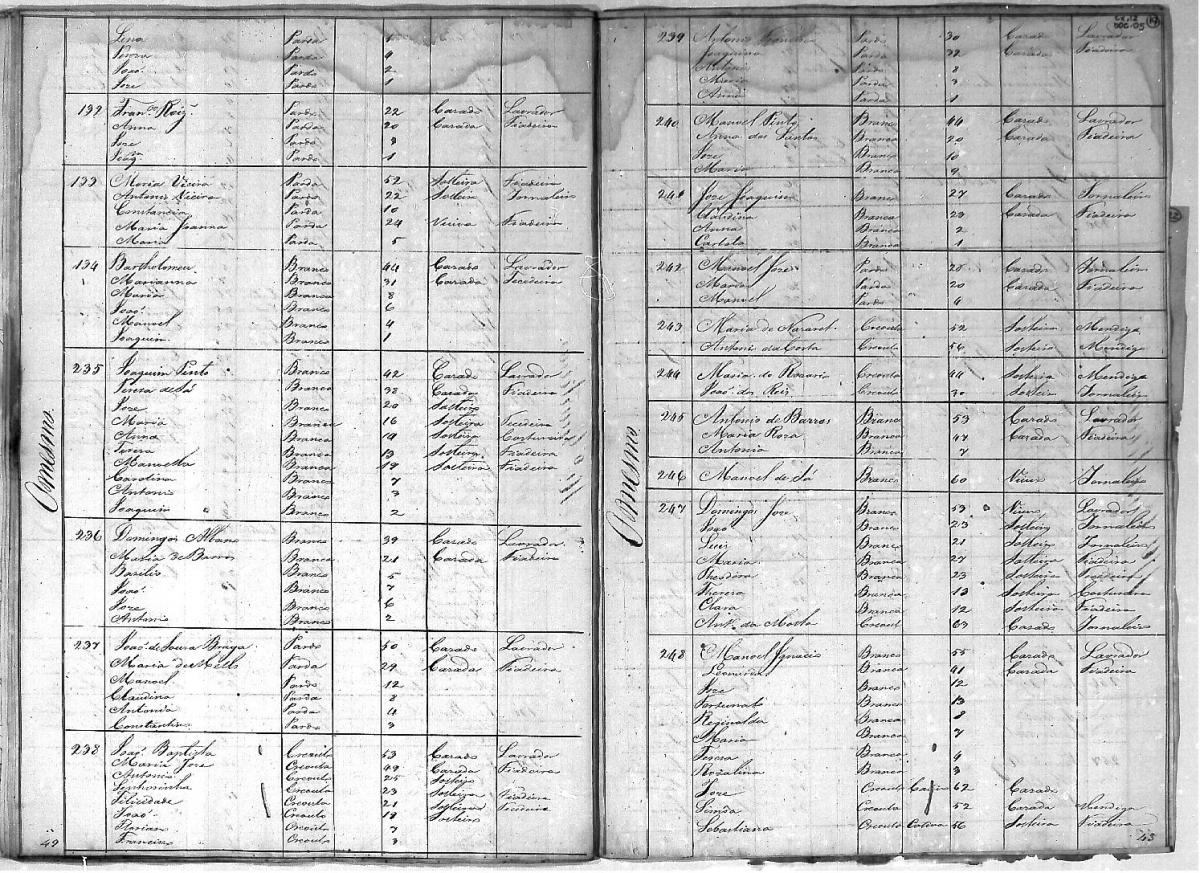 Lena Parda 1
Parda 4
João Pardo 2
Joze Pardo 1
132 Franco Roiz Pardo 22 Cazado Lavrador
Anna Parda 20 Cazada Fiadeira
Joze Pardo 3
Pardo 1
133 Maria Vieira Parda 52 Solteira Fiadeira
Antonio Vieira Pardo 22 Solteiro Jornaleiro
Constancia Parda 10
Maria Joanna Parda 24 Viuva Fiadeira
Maria Parda 5
134 Bartholomeu Branco 44 Cazado Lavrador
Marianna Branca 31 Cazada Tecedeira
Maria Branca 8
João Branco 6
Manoel Branco 4
Joaquim Branco 1
235 Joaquim Pinto Branco 42 Cazado Lavrador
de Sá Branca 38 Cazada Fiadeira
Joze Branco 20 Solteiro
Maria Branca 16 Solteira Tecideira
Anna Branca 19 Solteira Costureira
Tereza Branca 13 Solteira Fiadeira
Manoella Branca 19 Solteira Fiadeira
Carolina Branca 7
Antonio Branco 3
Joaquim Branco 2
236 Domingos Branco 39 Cazado Lavrador
Maria de Barros Branca 21 Cazada Fiadeira
Bazilio Branco 5
João Branco 7
Joze Branco 6
Antonio Branco 2
237 João de Souza Braga Pardo 50 Cazado Lavrador
Maria de Mello Parda 29 Cazada Fiadeira
Manoel Pardo 12
Claudina Parda 8
Antonia Parda 4
Constantino Pardo 3
238 João Baptista Creoulo 53 Cazado Lavrador
Maria Joze Creoula 49 Cazada Fiadeira
Antonio Creoulo 25 Solteiro
Senhorinha Creoula 23 Solteira Fiadeira
Felicidade Creoula 21 Solteira Fiadeira
João Creoulo 18 Solteiro
Florian Creoulo 7
Francisco Creoulo 3
Omesmo
49
CX.12
DOC.05
239 Antonio Pardo 30 Cazado Lavrador
Joaquina Parda 32 Cazada Fiadeira
Pardo 8
Maria Parda 3
Anna Parda 1
240 Manoel Pinto Branco 44 Cazado Lavrador
Anna dos Santos Branca 20 Cazada Fiadeira
Joze Branco 10
Maria Branca 9
241 Joze Joaquim Branco 27 Cazado Jornaleiro
Claudina Branca 23 Cazada Fiadeira
Anna Branca 2
Branca 1
242 Manoel Joze Pardo 25 Cazado Jornaleiro
Maria Parda 20 Cazada Fiadeira
Manoel Pardo 4
243 Maria de Nazaret Creoula 52 Solteira Mendiga
Antonio da Costa Creoulo 56 Solteiro Mendigo
244 Maria do Rozario Creoula 44 Solteira Mendiga
João dos Reis Creoulo 30 Solteiro Jornaleiro
245 Antonio de Barros Branco 53 Cazado Lavrador
Maria Roza Branca 47 Cazada Fiadeira
Antonia Branca 7
246 Manoel de Sá Branco 60 Viuvo Jornaleiro
247 Domingos Joze Branco 53 Viuvo Lavrador
João Branco 23 Solteiro Jornaleiro
Luis Branco 21 Solteiro Jornaleiro
Maria Branca 27 Solteira Fiadeira
Theodora Branca 23 Solteira Fiadeira
Thereza Branca 13 Solteira Costureira
Clara Branca 12 Solteira Fiadeira
Anto da Motta Creoulo 63 Cazado Jornaleiro
248 Manoel Ignacio Branco 55 Cazado Lavrador
Leonarda Branca 41 Cazada Fiadeira
Joze Branco 12
Fortunato Branco 13
Reginalda Branca 8
Maria Branca 7
Tereza Branca 4
Rozalina Branca 3
Joze Creoulo Cativo 62 Cazado
Creoula 52 Cazada Mendiga
Sebastianna Creoula Cativa 56 Solteira Fiadeira
Omesmo
43